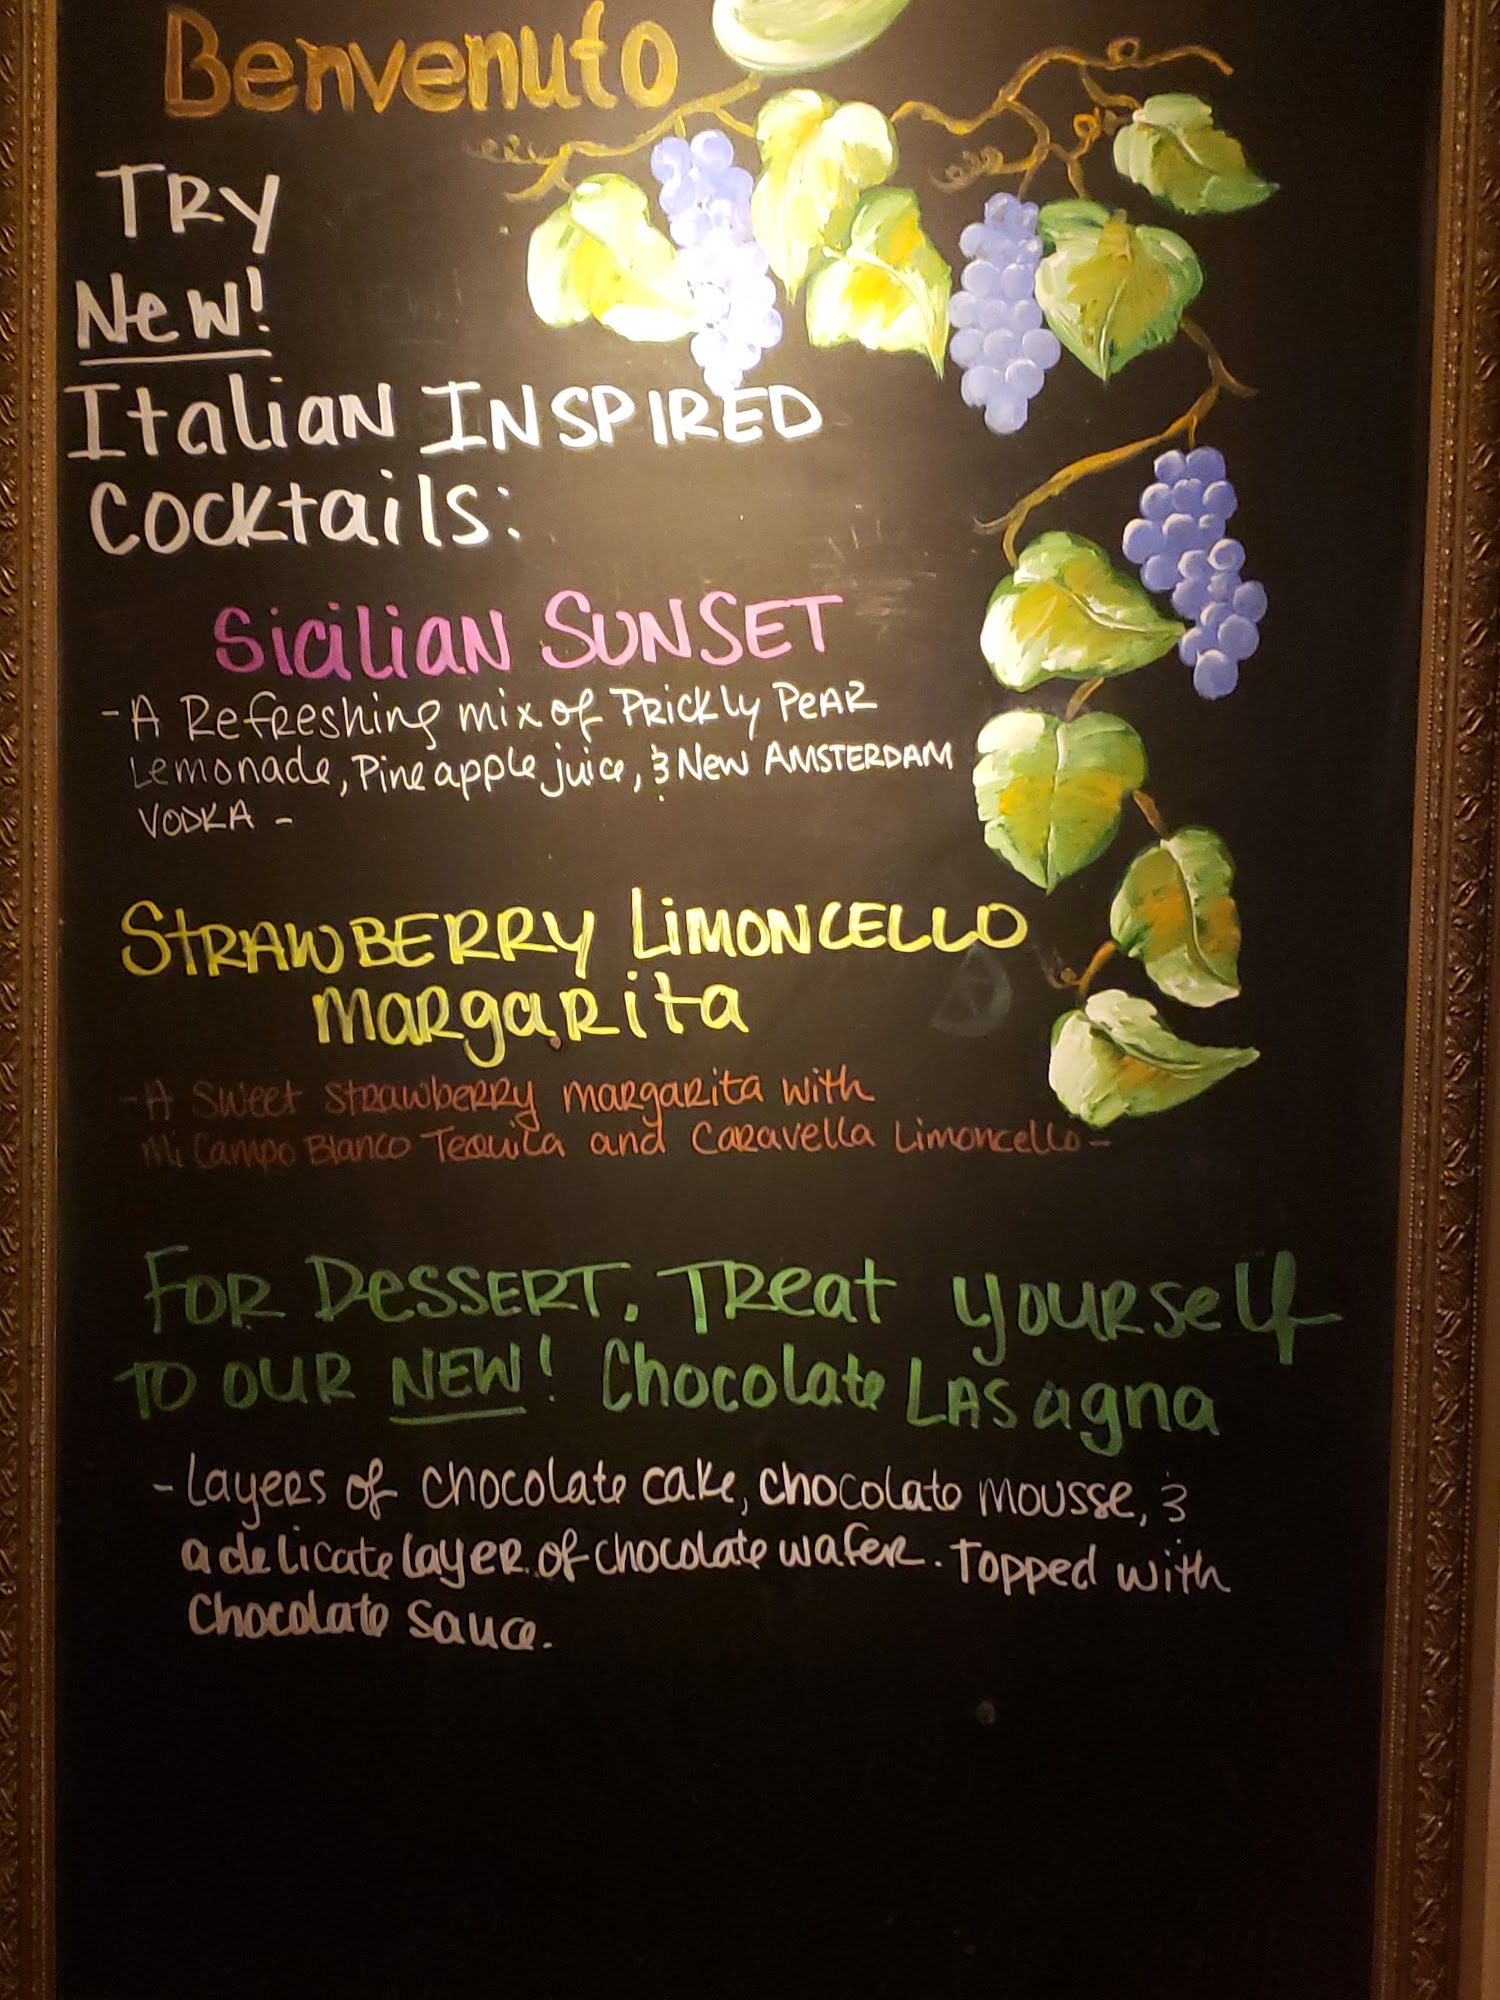 Benvenuto
TRY
New!
Italian INSPIRED
Cocktails:
Sicilian SUNSET
- A Refreshing mix of Prickly Pear
Lemonade, Pineapple juice, & New AMSTERDAM
VODKA -
STRAWBERRY LiMONCELLO
margarita
- A sweet strawberry margarita with
Mi Campo Blanco Tequila and Caravella Limoncello -
FOR DESSERT, TReat yourself
TO OUR NEW! Chocolate LASagna
- Layers of chocolate cake, chocolate mousse, &
a delicate layer of chocolate wafer. Topped with
Chocolate Sauce.